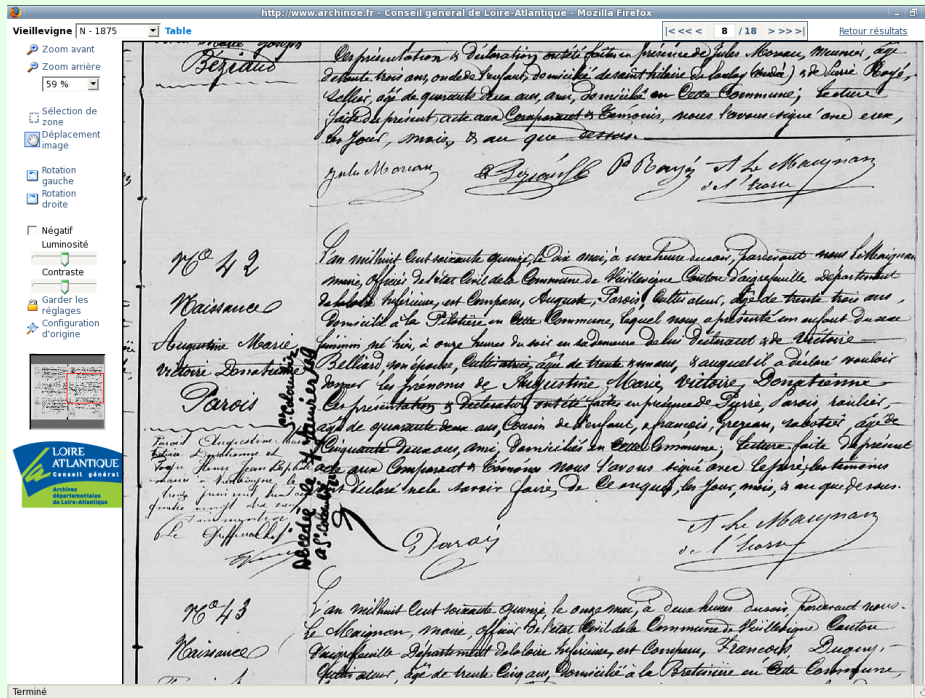 http://www.archinoe.fr - Conseil general de Loire-Atlantique - Mozilla Firefox
Vieillevigne N - 1875 Table |<< << 8 / 18 >> >>| Retour résultats
Zoom avant
Zoom arrière
59 %
Sélection de zone
Déplacement image
Rotation gauche
Rotation droite
Négatif
Luminosité
Contraste
Garder les réglages
Configuration d'origine
LOIRE
ATLANTIQUE
Conseil général
Archives
départementales
de Loire-Atlantique
Béziaud
Ces présentation & déclaration ont été faites en présence de Jules Moreau, meunier, âgé
de trente trois ans, oncle de l'enfant, domicilié de saint hilaire de loulay (vendée) & de Pierre Royé,
sellier, âgé de quarante deux ans, ami, domicilié en Cette Commune; lecture
faite du présent acte aux Comparant & témoins, nous l'avons signé avec eux,
les Jour, mois, & an que dessus.
Jules Moreau
A Le Maignan
de l'
No 42
Naissance
Augustine Marie
Victoire Donatienne
Parois
L'an mil huit Cent soixante quinze, le Dix mai, à une heure du soir, pardevant nous Le Maignan
maire, officier de l'état Civil de la Commune de Vieillevigne Canton d'aigrefeuille, département
de la loire Inférieure, est Comparu, Auguste, Parois, Cultivateur, âgé de trente trois ans
Domicilié à la en Cette Commune, lequel nous a présenté un enfant du sexe
féminin né hier, à onze heures du soir en sa demeure de lui déclarant & de Victoire
Belliard son épouse, Cultivatrice, âgée de trente ans, & auquel il a déclaré vouloir
donner les prénoms de Augustine Marie, Victoire, Donatienne
Ces présentation & déclaration ont été faites en présence de Pierre, Parois,
âgé de quarante deux ans, Cousin de l'enfant, & françois, sabotier, âgé de
Cinquante Deux ans, ami, Domiciliés en Cette Commune; lecture faite du présent
acte aux Comparant & témoins nous l'avons signé avec le père, les témoins
ont déclaré ne le savoir faire, de Ce enquis, les Jour, mois, & an que dessus.
Parois Augustine
Décédée le
à
Le Greffier
Parois
A Le Maignan
de l'
No 43
Naissance
L'an mil huit Cent soixante quinze le onze mai, à deux heures du soir, pardevant nous
Le Maignan, maire, officier de l'état Civil de la Commune de Vieillevigne Canton
d'aigrefeuille Département de la loire Inférieure, est Comparu, François, Dugny,
Cultivateur, âgé de trente Cinq ans, Domicilié à la Bretinière en Cette Commune,
Terminé